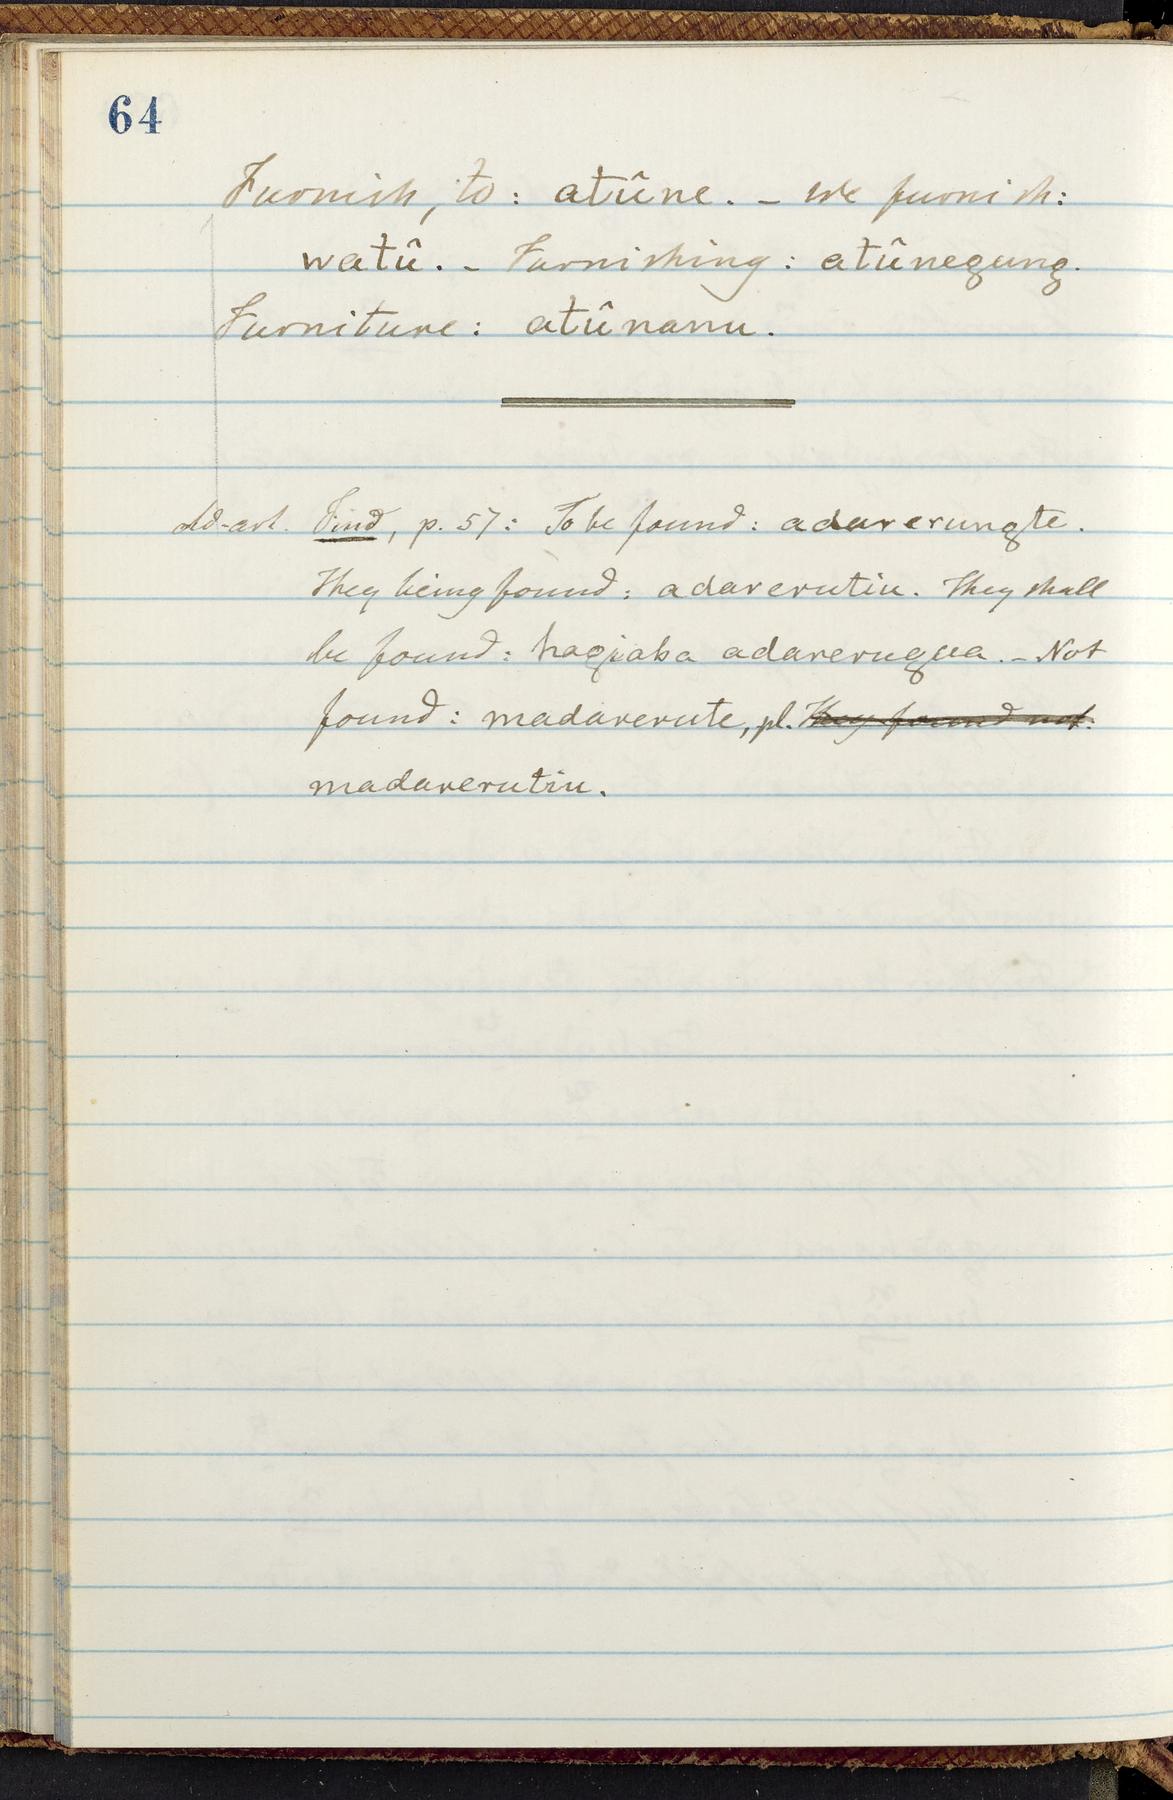 64
Furnish, to: atûne. – We furnish:
watû. – Furnishing: atûnegung.
Furniture: atûnanu.
Find, p. 57: To be found: adarerungte.
They being found: adarerutiu. They shall
be found: hagiaba adarerugua. – Not
found: madarerute, pl. They found not:
madarerutiu.